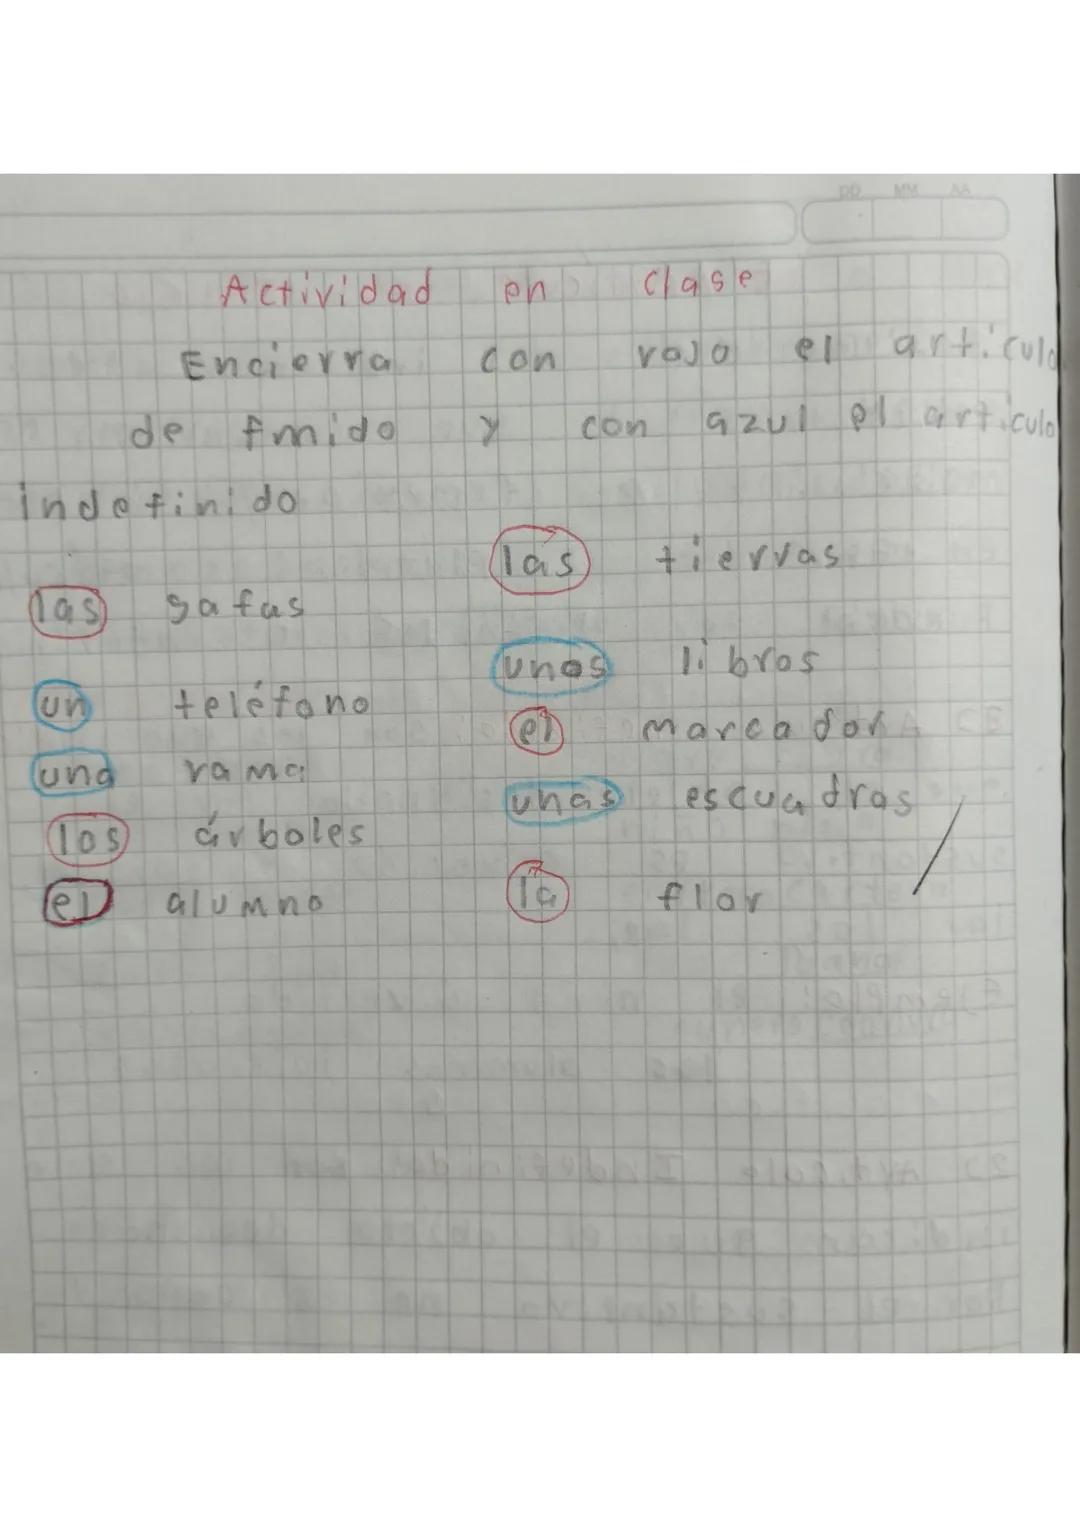 DD MM AA
Actividad en clase
Encierra con rojo el artículo
de fmido y con azul el artículo
indefinido
las gafas
un teléfono
una rama
los árboles
el alumno
las tierras
unos libros
el marcador
unas escuadras
la flor